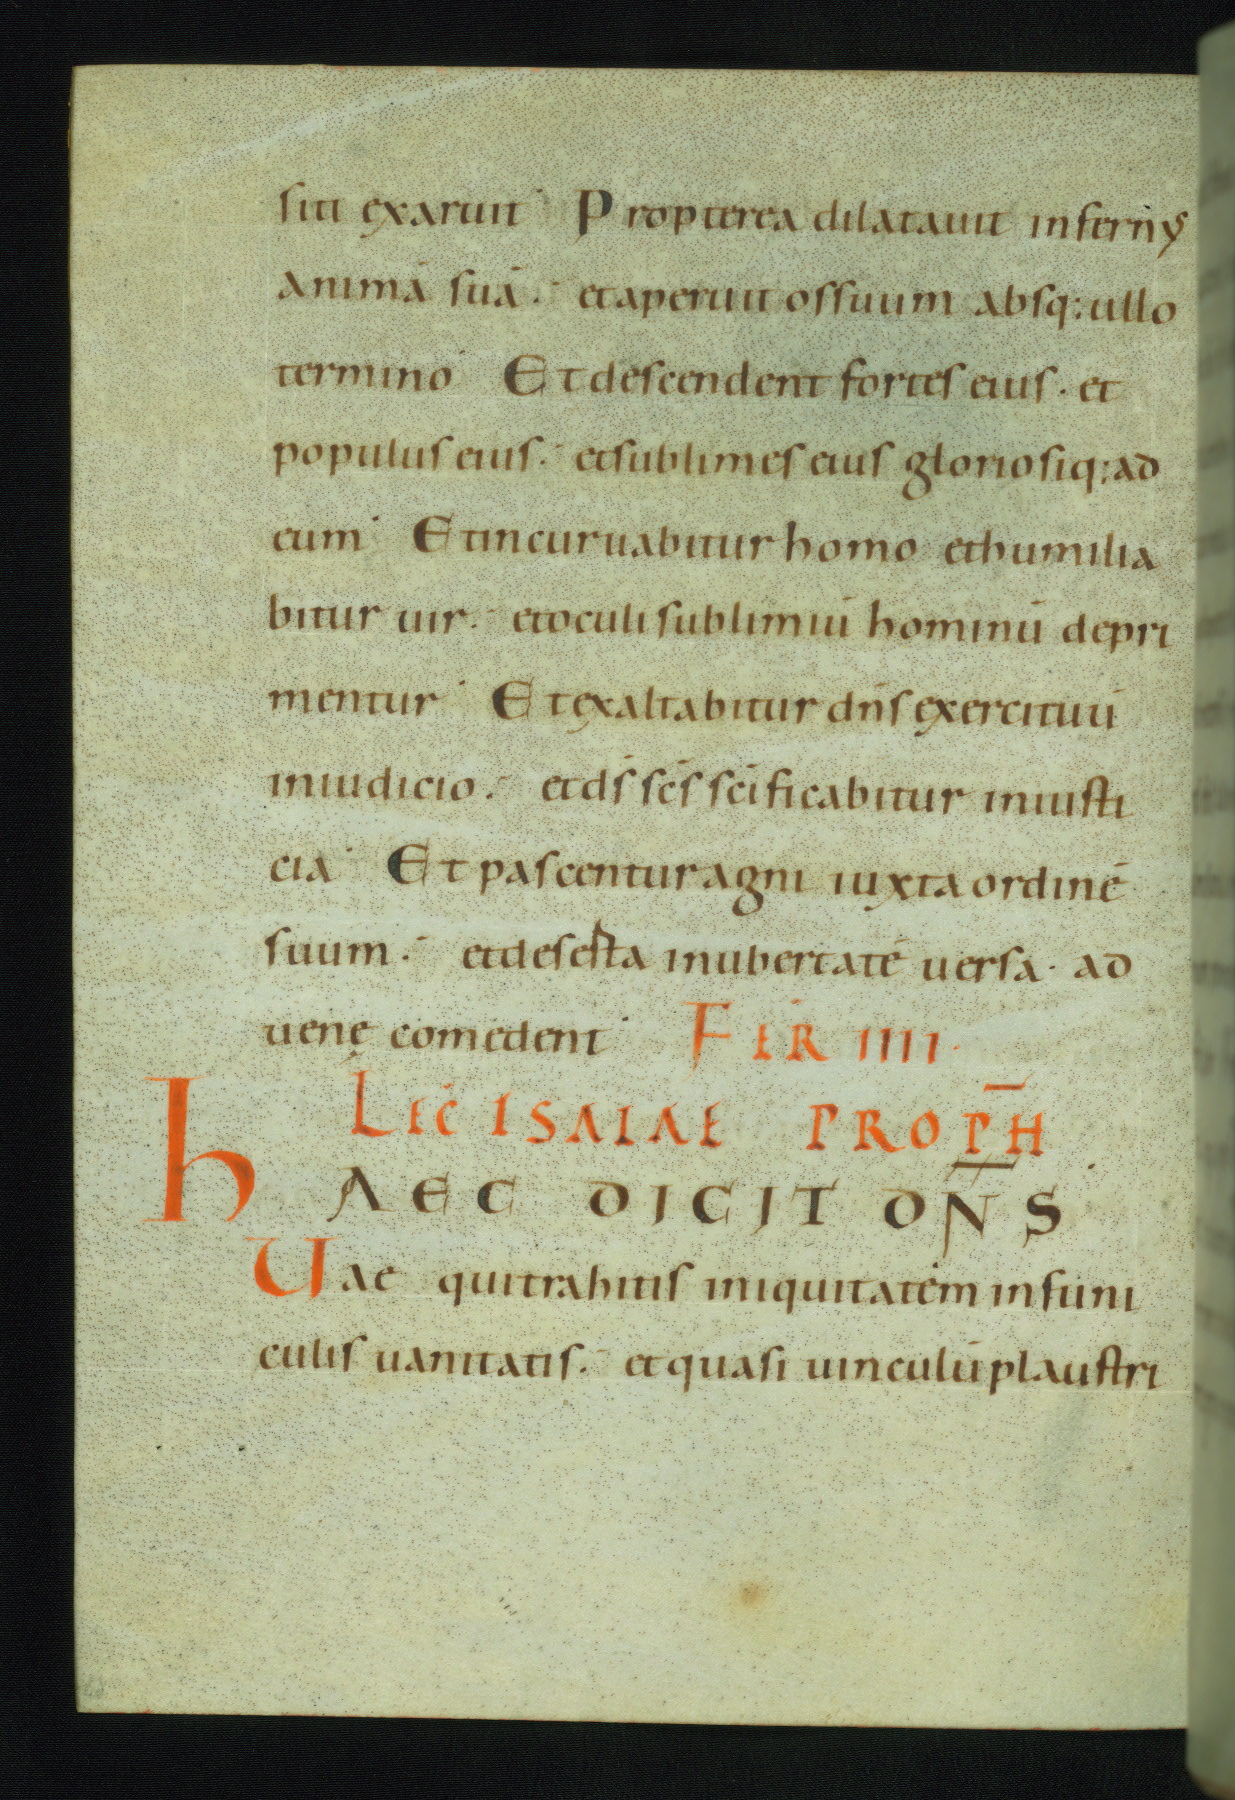 siti exaruit· Propterea dilatauit infernꝰ
animā suā·⁻ et aperuit os suum absq; ullo
termino· Et descendent fortes eius· et
populus eius·⁻ et sublimes eius gloriosiq; ad
eum· Et incuruabitur homo et humilia
bitur uir·⁻ et oculi sublimiū hominū depri
mentur· Et exaltabitur dn̄s exercituū
in iudicio·⁻ et ds̄ scs̄ scīficabitur in iusti
cia· Et pascentur agni iuxta ordinē
suum·⁻ et deserta in ubertatē uersa· ad
uenę comedent· FER̄ IIII·
LEC̄ ISAIAE PROPH̄
hAEC DICIT DN̄S·
Uae qui trahitis iniquitatem in funi
culis uanitatis·⁻ et quasi uinculū plaustri